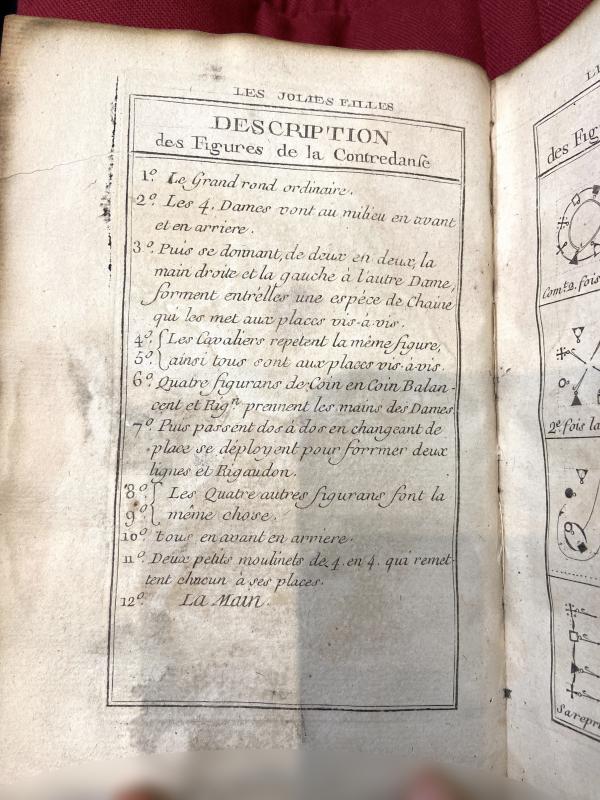 LES JOLIES FILLES
DESCRIPTION
des Figures de la Contredanse
1º. Le Grand rond ordinaire.
2º. Les 4. Dames vont au milieu en avant
et en arriere.
3º. Puis se donnant, de deux en deux, la
main droite et la gauche à l'autre Dame,
forment entr'élles une espéce de Chaine
qui les met aux places vis-à-vis.
4º. Les Cavaliers repetent la même figure,
5º. ainsi tous sont aux places vis-à-vis.
6º. Quatre figurans de Coin en Coin Balan-
cent et Rigⁿ. prennent les mains des Dames
7º. Puis passent dos à dos en changeant de
place se déployent pour forrmer deux
lignes et Rigaudon.
8º. Les Quatre autres figurans font la
9º. même chose.
10º. tous en avant en arriere.
11º. Deux petits moulinets de 4. en 4. qui remet-
tent chacun à ses places.
12º. La Main.
LE
des Fig
Com.t 2. fois
2e. fois la
Sa repri